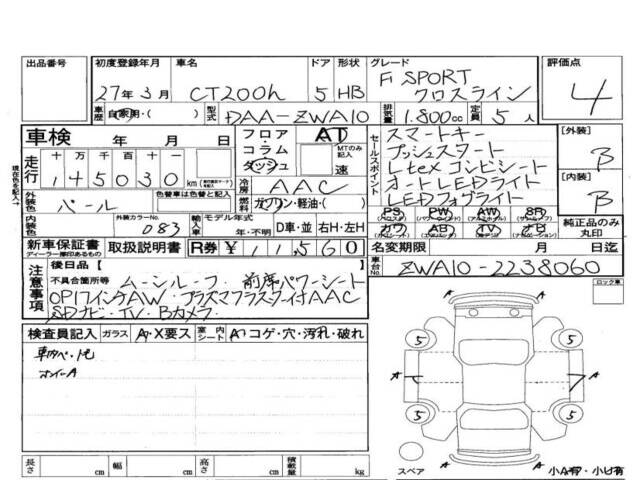 出品番号 初度登録年月 車名 ドア 形状 グレード 評価点
27年 3月 CT200h 5 HB F SPORT クロスライン 4
車歴 自家用・( ) 型式 DAA-ZWA10 排気量 1.800cc 定員 5人
車検 年 月 日 フロア・コラム・ダッシュ AT MTのみ記入 速
セールスポイント スマートキー
プッシュスタート
Ltex コンビシート
オートLEDライト
LEDフォグライト
[外装] B
[内装] B
現在色を記入
走行 十 万 千 百 十 145030 km
外装色 パール 色替車は色替前を記入
冷房 AAC
燃料 ガソリン・軽油・( )
内装色 外装カラーNo. 083 輸入車 モデル年式 年・不明 D車・並 右H・左H
PS PW AW SR
カワ AB TV ナビ
純正品のみ丸印
新車保証書 ディーラー捺印あるもの 取扱説明書 R券 ¥11,560 名変期限 月 日迄
注意事項 後日品 不具合箇所等 ムーンルーフ 前席パワーシート
OP17インチAW プラズマクラスター付AAC
SDナビ・TV・Bカメラ
車台No. ZWA10-2238060
ロック車
検査員記入 ガラス A・X要ス 室内シート A・コゲ・穴・汚れ・破れ
ホイールA
5 A 5
A A
5 A 5
スペア 小A有・小U有
長さ cm 幅 cm 高さ cm 積載量 kg